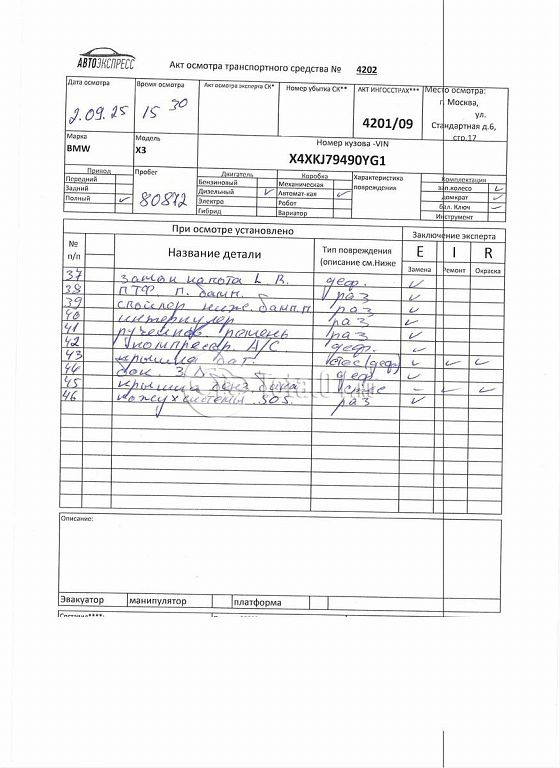 АВТОЭКСПРЕСС
Акт осмотра транспортного средства № 4202
Дата осмотра
2.09.25
Время осмотра
15 30
Акт осмотра эксперта СК*
Номер убытка СК**
АКТ ИНГОССТРАХ***
4201/09
Место осмотра:
г. Москва,
ул.
Стандартная д.6,
стр.17
Марка
BMW
Модель
X3
Номер кузова -VIN
X4XKJ79490YG1
Привод
Передний
Задний
Полный ✓
Пробег
80872
Двигатель
Бензиновый
Дизельный ✓
Электро
Гибрид
Коробка
Механическая
Автомат-кая ✓
Робот
Вариатор
Характеристика
повреждения
Комплектация
зап.колесо ✓
домкрат ✓
бал. Ключ ✓
Инструмент
При осмотре установлено
Заключение эксперта
№
п/п
Название детали
Тип повреждения
(описание см.Ниже
E I R
Замена Ремонт Окраска
37 замок капота L В. деф. ✓
38 ПТФ П. бамп. раз ✓
39 спойлер ниж. бамп.п раз ✓
40 интеркулер раз ✓
41 ремень раз ✓
42 компрессор А/С. деф. ✓
43 крышка баг. (деф) ✓ ✓ ✓
44 бок. З Л деф ✓
45 крышка бенз бака - ✓ ✓
46 кожух системы SOS. раз ✓
Описание:
Эвакуатор манипулятор платформа